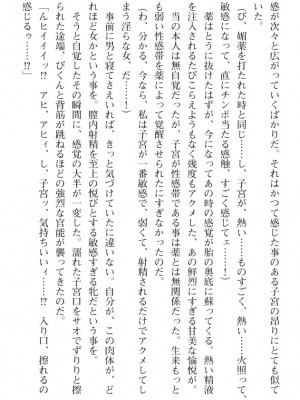 感が次々と広がっていくばかりだ。それはかつて感じた事のある子宮の昂りにとても似て
いた。
(び、媚薬を打たれた時と同じ……し、子宮が、熱い……ものすごく、熱い……火照って、
敏感になって、直にチンポ当たる感触、すごく感じてェ……！)
薬はとうに抜けたはずが、今になってあの時の感覚が胎の奥底に蘇ってくる。熱い精液
を注入されるたびこらえようもなく幾度もアクメした、あの鮮烈にすぎる甘美な愉悦が。
当の本人は無自覚だったが、子宮が性感帯である事は薬とは無関係だった。生来もっと
も弱い性感帯が薬によって覚醒させられたにすぎなかったのだ。
(わ、分かる、今なら、私は子宮が一番敏感で、弱くて、射精されるだけでアクメしてし
まう淫らな女、だ……！)
事前に男と寝てさえいれば、きっと気づけていたに違いない。自分が、この肉体が、ど
れほど女かという事を。膣内射精を至上の悦びとする敏感すぎる牝だという事を。
そうと自覚したその瞬間に、感覚の大半が一変した。濡れた子宮口をサオでずりりと擦
られた途端、びくんと背筋が跳ねるほどの強烈な官能が襲ってきたのだ。
「んヒィイイイッ!?　アヒ、アヒィ、し、子宮ッ、気持ちいィ……!?　入り口、擦れるの
感じるゥ……!?」